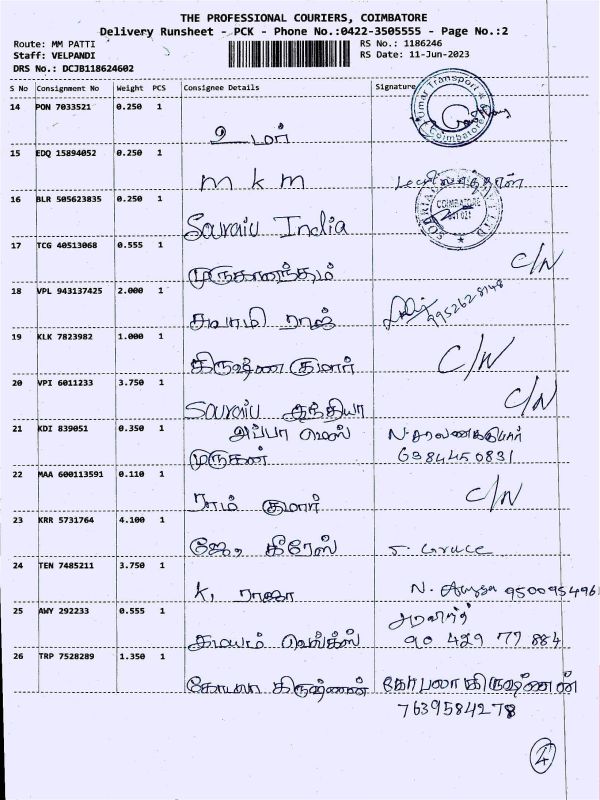 THE PROFESSIONAL COURIERS, COIMBATORE
Delivery Runsheet - PCK - Phone No.:0422-3505555 - Page No.:2
Route: MM PATTI
RS No.: 1186246
Staff: VELPANDI
RS Date: 11-Jun-2023
DRS No.: DCJB118624602
S No Consignment No Weight PCS Consignee Details Signature
14 PON 7033521 0.250 1
Umar Transport Coimbatore
உமர்
15 EDQ 15894052 0.250 1
m k m
16 BLR 505623835 0.250 1
COIMBATORE
641 021
Souraiu India
17 TCG 40513068 0.555 1
முருகானந்தம் C/N
18 VPL 943137425 2.000 1
9952628148
சுவாமி ராஜ்
19 KLK 7823982 1.000 1
கிருஷ்ண குமார் C/N
20 VPI 6011233 3.750 1
Souraiu இந்தியா C/N
21 KDI 839051 0.350 1
அப்பா மெஸ் N. சரவணக்குமார்
முருகன் 6384450831
22 MAA 600113591 0.110 1
ராம் குமார் C/N
23 KRR 5731764 4.100 1
ஜே. கிரேஸ் J. Grace
24 TEN 7485211 3.750 1
K. ராஜா N. 950095496
25 AWY 292233 0.555 1
அரவிந்த்
இமயம் வெங்க்ஸ் 90 429 77 884
26 TRP 7528289 1.350 1
கோபால கிருஷ்ணன் கோபாலகிருஷ்ணன்
7639584278
2